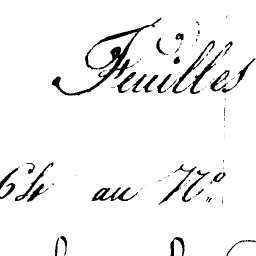 Feuilles
64 au N°